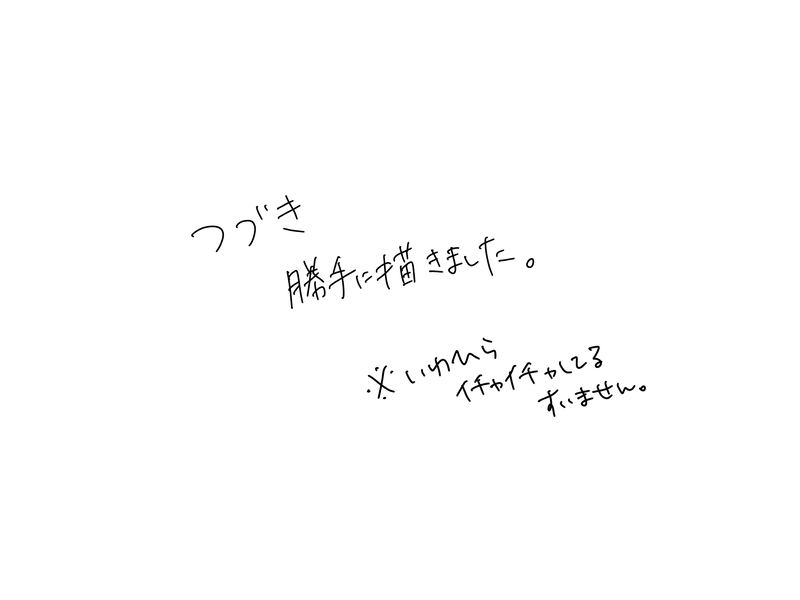 つづき
勝手に描きました。
※いわひら
イチャイチャしてる
すいません。